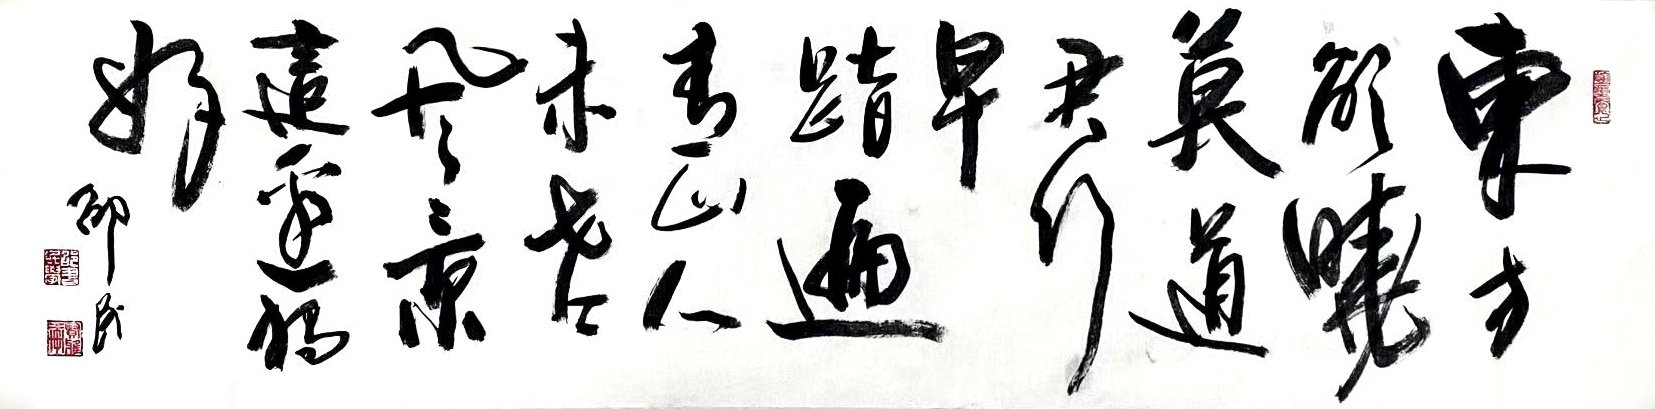 東方
欲曉
莫道
君行
早
踏遍
青山人
未老
風景
這邊獨
好
邵民